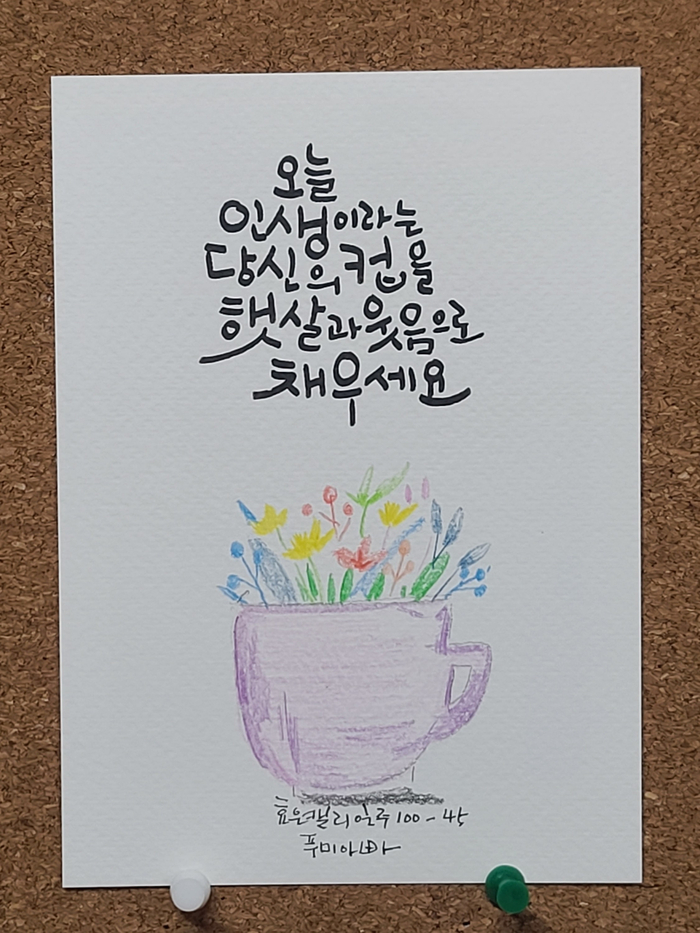 오늘
인생이라는
당신의 컵을
햇살과 웃음으로
채우세요
효원캘리일주 100-45
푸미아빠